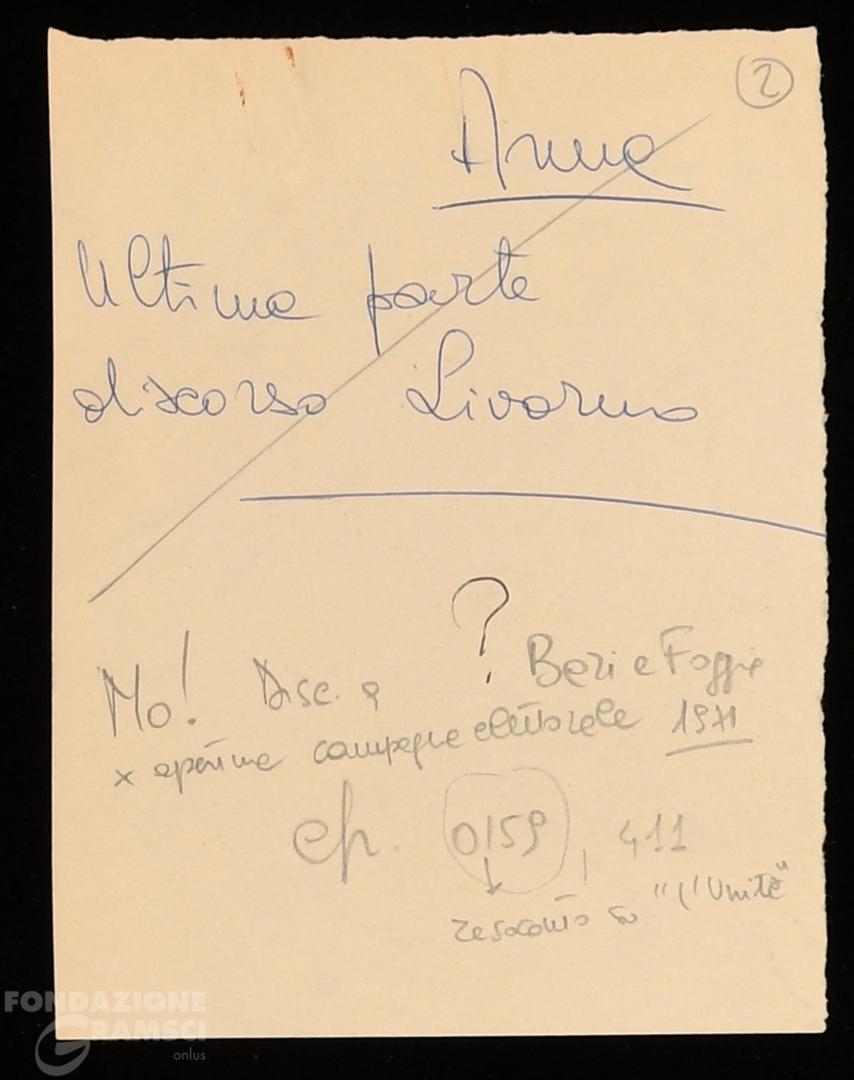 2
Anna
Ultima parte
discorso Livorno
?
Mo! Disc. a Bari e Foggia
x apertura campagna elettorale 1971
cfr. 0159, 411
resoconto su "l'Unità"
FONDAZIONE
GRAMSCI
onlus